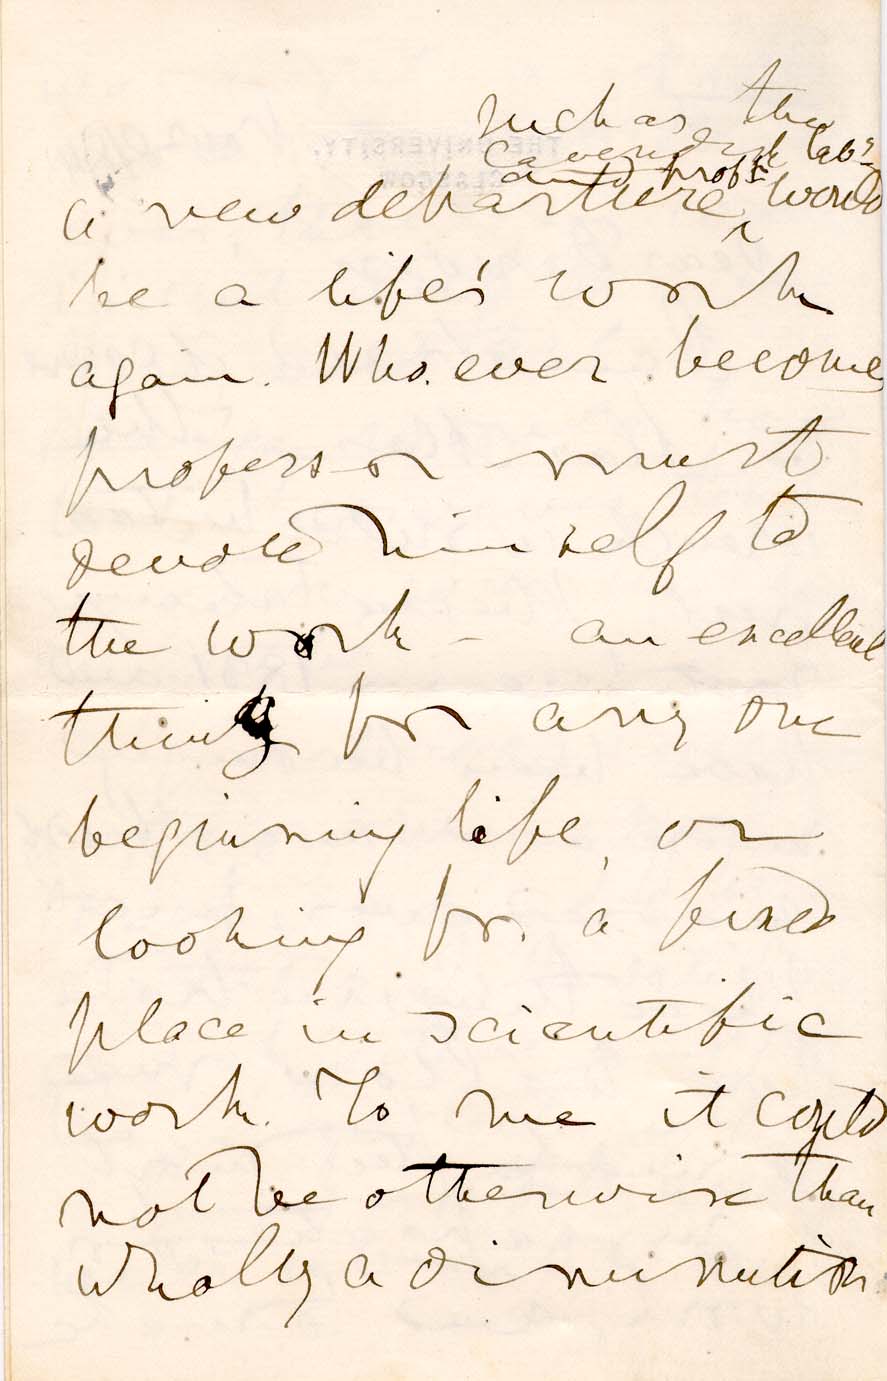 such as the
Cavendish Labʸ
and profʳ
a new departure ‸ would
be a life's work
again. Whoever becomes
professor must
devote himself to
the work – an excellent
thing for any one
beginning life, or
looking for a fixed
place in scientific
work. To me it could
not be otherwise than
wholly a diminution